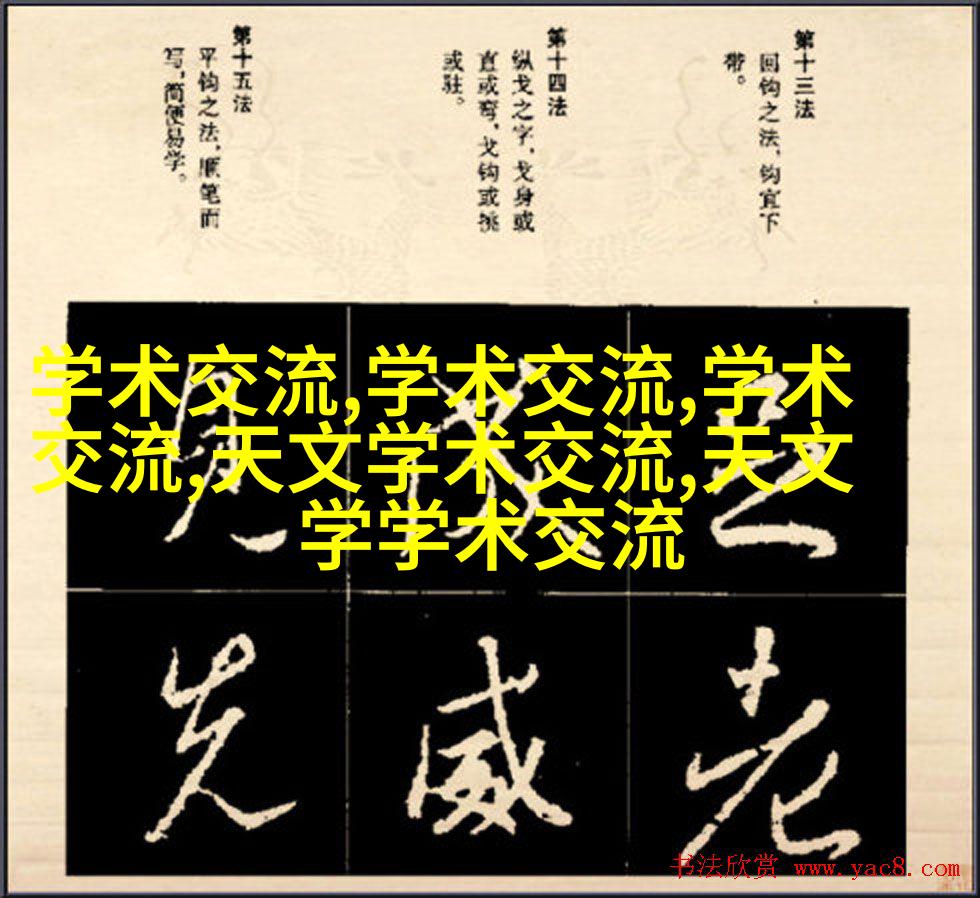 第十三法
回钩之法，钩宜下
带。
第十四法
纵戈之字，戈身或
直或弯，戈钩或挑
或驻。
第十五法
平钩之法，顺笔而
写，简便易学。
学术交流,学术交流,学术
交流,天文学术交流,天文
学学术交流
先 威 老
书法欣赏 www.yac8.com